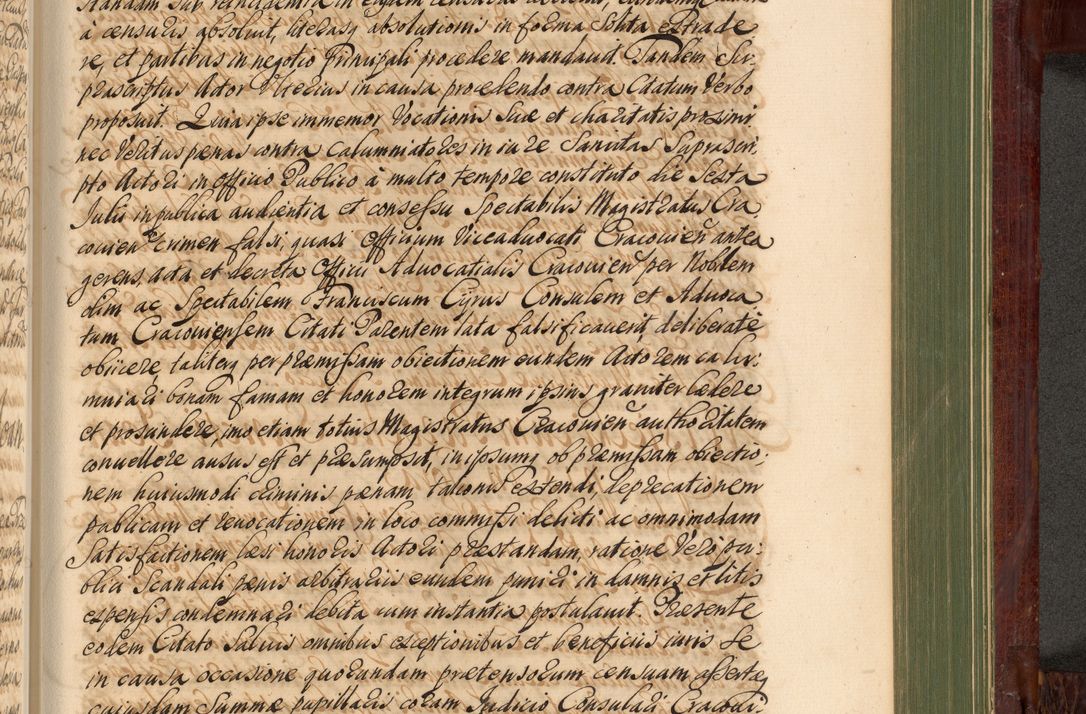 à censuris absoluit, literasq absolutionis in forma solita extrade
re, et partibus in negotio Principali procedere mandauit. Tandem su-
prascriptus Actor Vlterius in causa procedendo contra Citatum Verbo
proposuit. Quia ipse immemor Vocationis suæ et charitatis proximi
nec Veritus pænas contra Calumniatores in iure sancitas suprascri-
pto Actori in officio Publico à multo tempore constituto die Sexta
Julii in publica audientia et consessu Spectabilis Magistratus Cra
couien crimen falsi, quasi officium Viceaduocati Cracouien antea
gerens, acta et decreta Officii Aduocatialis Cracouien per Nobilem
olim ac Spectabilem Franciscum Cyrus Consulem et Aduoca
tum Cracouiensem Citati Parentem lata falsificauerit, deliberatè
obiicere, taliterq per præmissam obiectionem eundem Actorem calu-
mniari bonam famam et honorem integrum ipsius grauiter lædere
et proscindere, imo etiam totius Magistratus Cracouien authoritatem
conuellere ausus est et præsumpsit, in ipsumq ob præmissam obiectio-
nem huiusmodi criminis pænam talionis extendi, deprecationem
publicam et reuocationem in loco commissi delicti ac omnimodam
satisfactionem læsi honoris Actori præstandam, ratione Verò pu-
blici Scandali pænis arbitrariis eundem puniri in damnis et litis
expensis condemnari debita cum instantia postulauit. Præsente
eodem Citato Saluis omnibus exceptionibus et beneficiis iuris se
in causa occasione quorundam prætensorum censuum assertæq
cuiusdam Summæ pupillaris coram Judicio Consulari Cracoui-